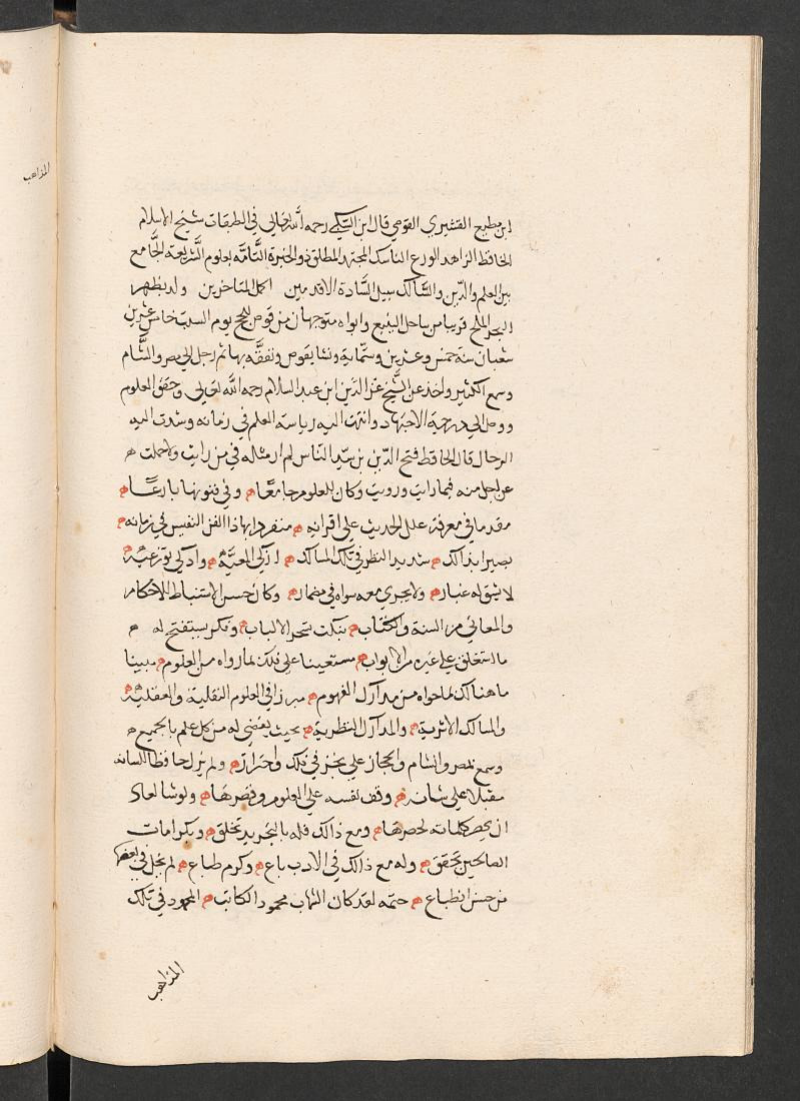 المذاهب
ابن مطيع القشيري القوصي قال ابن السبكي رحمه الله تعالى في الطبقات شيخ الاسلام
الحافظ الزاهد الورع الناسك المجتهد المطلق ذو الخبرة التامّة بعلوم الشّريعة الجّامع
بين العلم والدّين والسّالك سبيل السّادة الاقدمين اكمل المتاخرين ولد بظهر
البحر الملح قريبا من ساحل الينبع وابواه متوجهان من قوص للحج يوم السبت خامس عشرين
شعبان سنة خمس وعشرين وستماية ونشا بقوص وتفقّه بها ثم رحل الى مصر والشّام
وسمع الكثير واخذ عن الشّيخ عزّ الدّين ابن عبد السلام رحمه الله تعالى وحقق العلوم
ووصل الى درجة الاجتهاد وانتهت اليه رياسة العلم في زمانه وشدت اليه
الرحال قال الحافظ فتح الدّين بن سيّد النّاس لم ار مثله في من رايت ولا حملت
عن اجل منه فيما رايت ورويت وكان للعلوم جامعًا وفي فنونها بارعًا
مقدما في معرفة علل الحديث على اقرانه منفردا بهاذا الفن النفيس في زمانه
بصيرا بذالك شديد النظر في تلك المسالك اذكى المعيّة وازكى لوذعيّة
لا يشق له غبار ولا يجري معه سواه في مضمار وكان حسن الاستنباط للاحكام
والمعاني من السنة والكتاب بنكت تسحر الالباب وفكر يستفتح له
ما استغلق على غيره من الابواب مستعينا على ذلك بما رواه من العلوم مبينا
ما هنالك بما حواه من مدارك الفهوم مبرزا في العلوم النقلية والعقليّة
والمسالك الاثرية والمدارك النظرية بحيث يقضى له من كل علم بالجميع
وسمع بمصر والشام والحجاز على تحر في ذلك واحتراز ولم يزل حافظا للسانه
مقبلا على شانه وقف نفسه على العلوم وقصرها ولو شا العاد
ان يحصر كلماته لحصرها ومع ذالك فله بالتجريد تخلق وبكرامات
الصالحين تحقق وله مع ذالك في الادب باع وكرم طباع لم يخل في بعضها
من حسن انطباع حتى لقد كان الشهاب محمود الكاتب المحمود في تلك
المذاهب